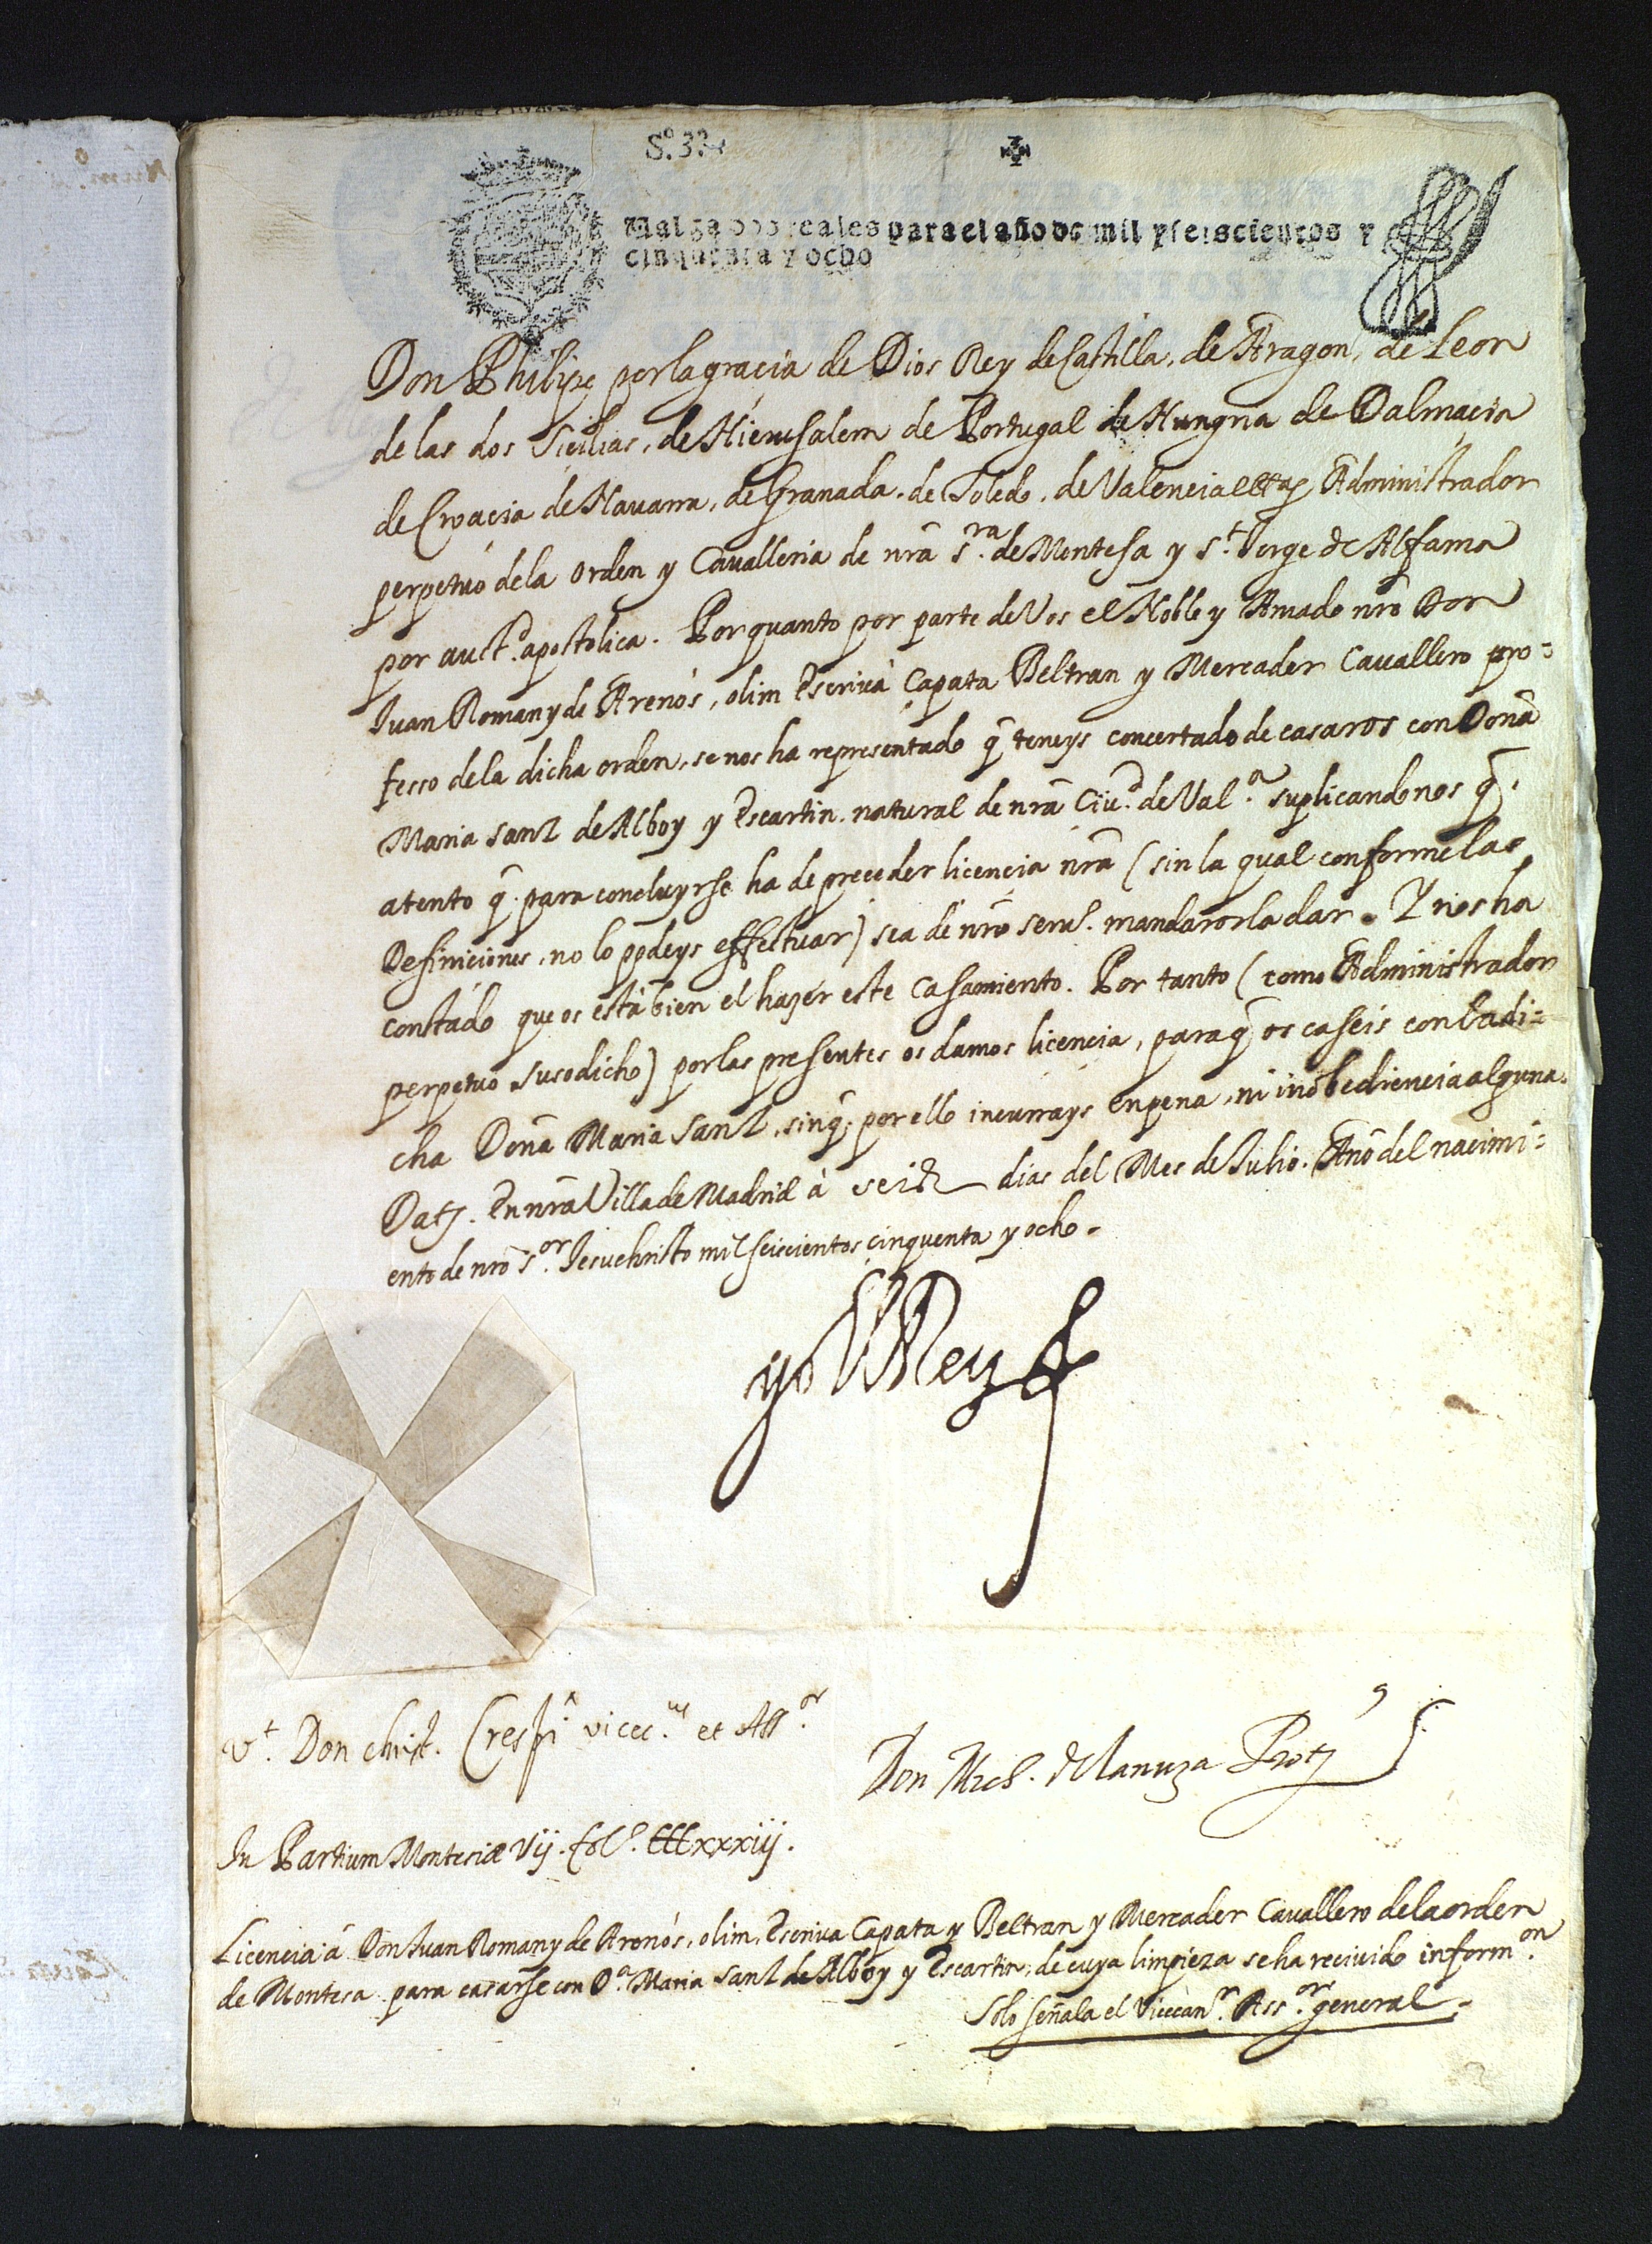 S.º 3.º
Valga dos reales para el año de mil y seiscientos y
cinquenta y ocho
Don Philipe por la gracia de Dios Rey de Castilla, de Aragon, de Leon
de las dos Sicilias, de Hierusalem de Portugal de Hungria de Dalmacia
de Croacia de Nauarra, de Granada. de Toledo. de Valencia etta Administrador
perpetuo de la orden y Caualleria de nrã s.ra de Montesa y s.t Jorge de Alfama
por auct.d apostolica. Por quanto por parte de Vos el Noble y Amado nrõ Don
Juan Romany de Arenós, olim Escriuà Çapata Beltran y Mercader Cauallero pro=
fesso de la dicha orden, se nos ha representado q̃ teneys concertado de casaros con Dona
Maria Sanz de Alboy y Escartin. natural de nrã Ciu.d de Val.a suplicandonos q̃.
atento q̃. para concluyrse ha de preceder licencia nrã (sin la qual conforme las
Definiciones, no lo podeys effectuar) sea de nrõ seru.º mandarosla dar. Y nos ha
constado que os està bien el hazer este Casamiento. Por tanto (como Administrador
perpetuo susodicho) por las presentes os damos licencia, para q̃ os caseis con la di=
cha Dona Maria Sanz, sin q̃. por ello incurrays en pena, ni inobediencia alguna.
Dat. En nrã Villa de Madrid à seiz dias del Mes de Julio. Año del nacimi=
ento de nrõ s.or Jesuchristo mil seiscientos cinquenta y ocho.
yo el Rey
V.t Don Christ. Crespi vicec.us et Ass.or
Don Mich. de Lanuza Prot.
In Partium Montesiæ Vij. fol.º CCCxxxiij.
Licencia à Don Juan Romany de Arenós, olim, Escriua Çapata y Beltran y Mercader Cauallero de la orden
de Montesa para casarse con D.a Maria Sanz de Alboy y Escartin, de cuya limpieza se ha reciuido inform.on
Solo señala el Vicecan.r Ass.or general.